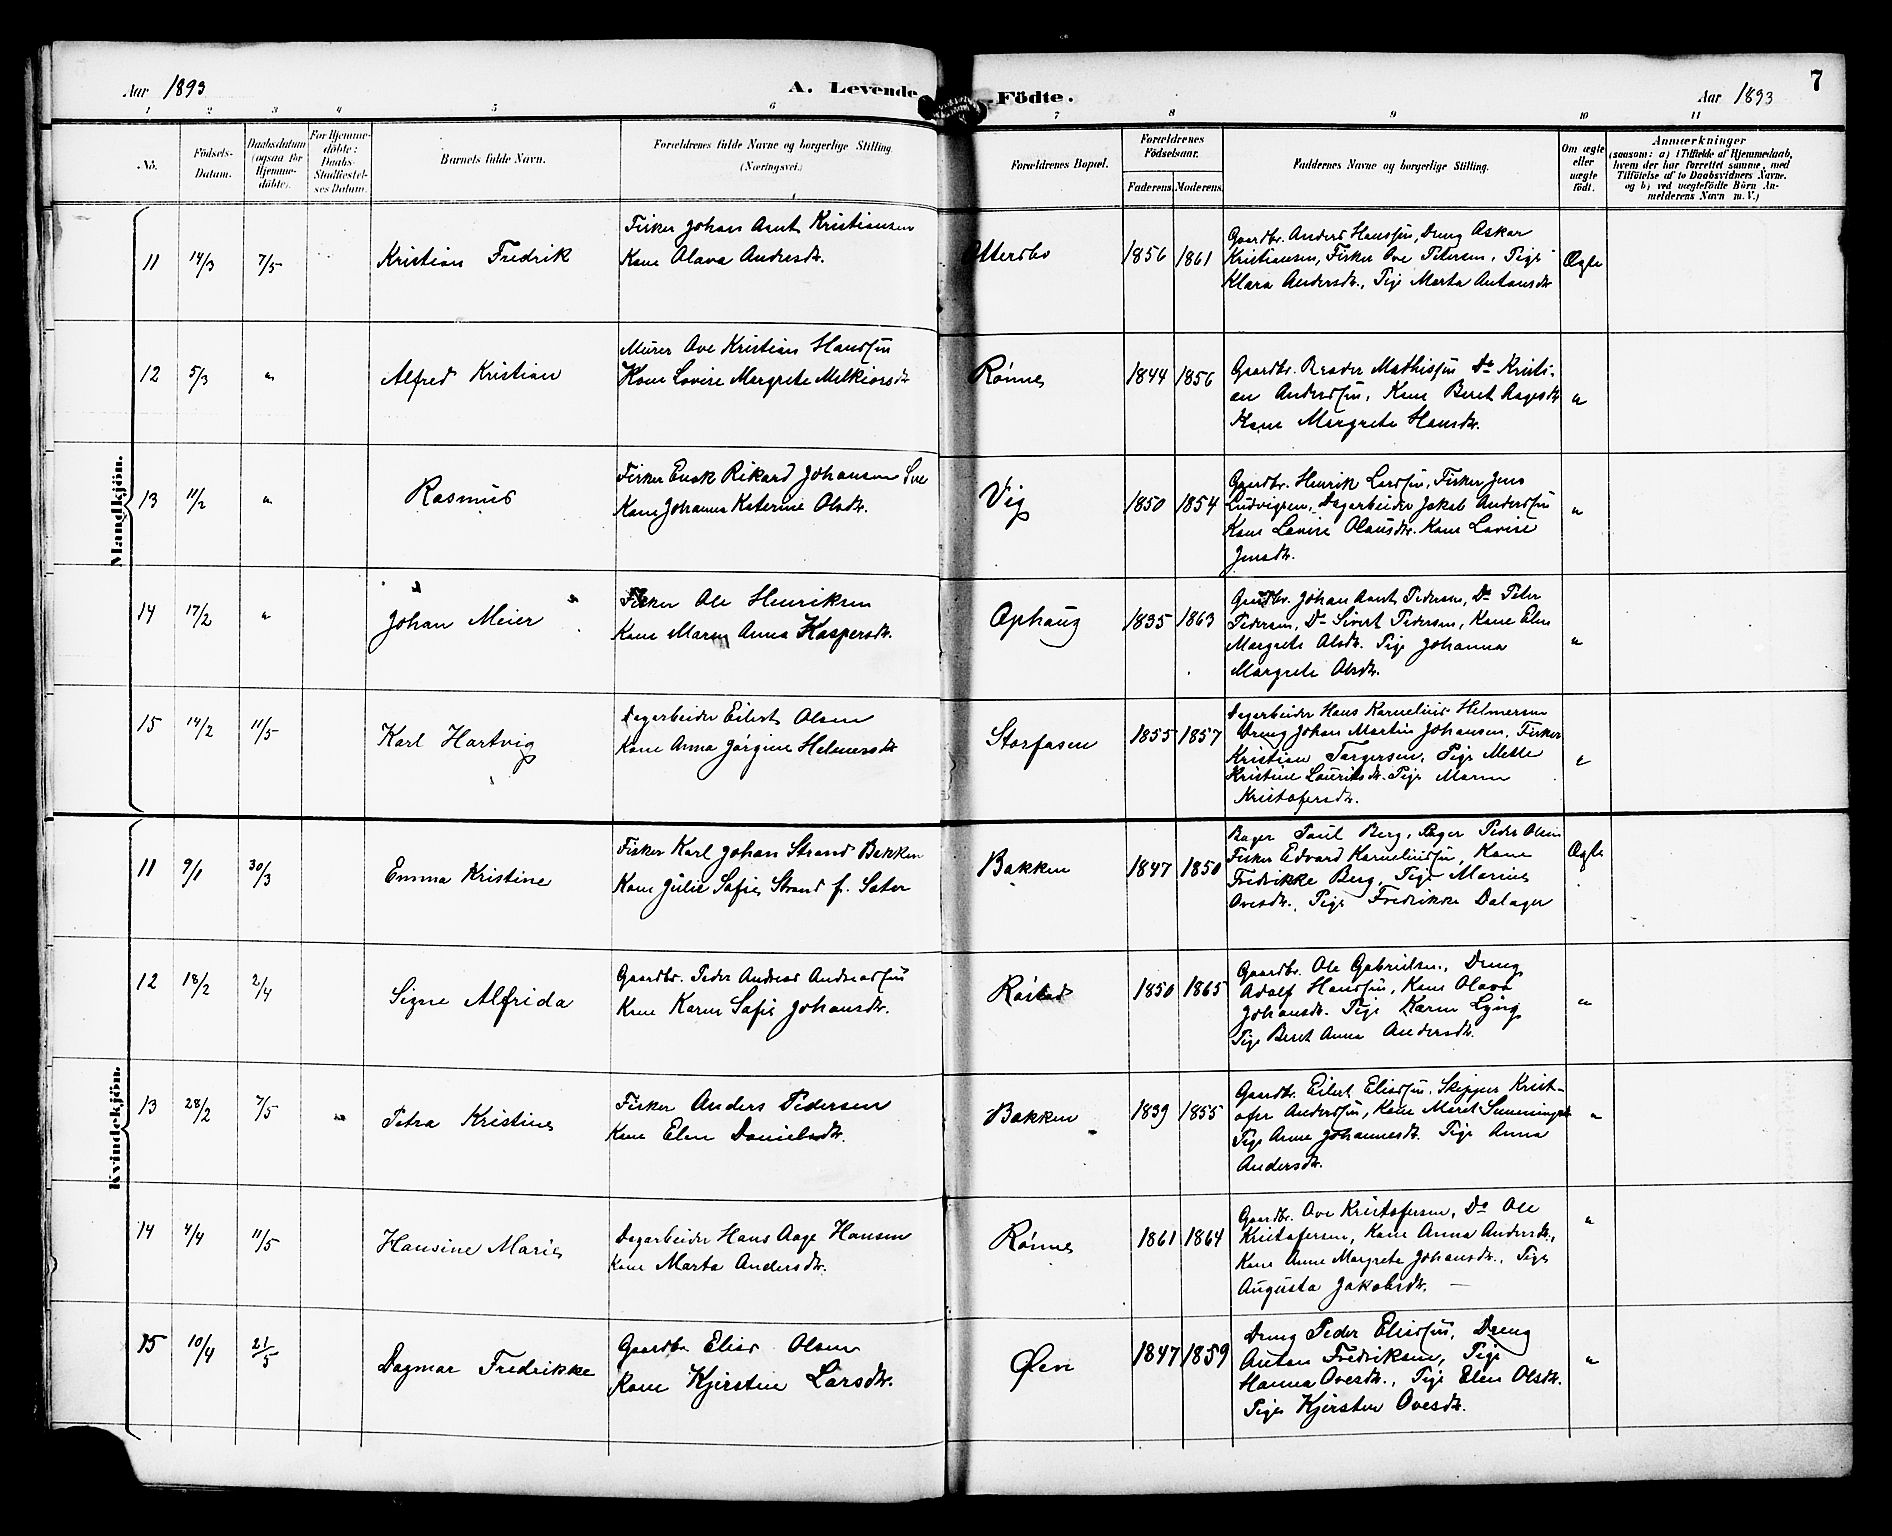 Aar 1893
A. Levende
Födte.
Aar 1893
7
1 2 3 4 5 6 7 8 9 10 11
No.
Födsels-
Datum.
Daabsdatum
(ogsaa for
Hjemme-
döbte).
For Hjemme-
döbte:
Daabs-
Stadfæstel-
ses Datum.
Barnets fulde Navn.
Forældrenes fulde Navne og borgerlige Stilling
(Næringsvei.)
Forældrenes Bopæl.
Forældrenes
Födselsaar.
Faderens.
Moderens.
Faddernes Navne og borgerlige Stilling.
Om ægte
eller
uægte
födt.
Anmærkninger
(saasom: a) i Tilfælde af Hjemmedaab,
hvem der har forrettet samme, med
Tilföielse af to Daabsvidners Navne.
og b) ved uægtefödte Börn An-
melderens Navn m. V.)
Mandkjön.
11 14/3 7/5
Kristian Fredrik
Fisker Johan Arnt Kristiansen
Kone Olava Andersdtr.
Ottersbo
1856 1861
Gaardbr. Anders Hanssön, Dreng Askar
Kristiansen, Fisker Ove Petersen, Pige
Klara Andersdtr., Pige Marta Antonsdtr
Ægte
12 5/3 "
Alfred Kristian
Murer Ove Kristian Hanssön
Kone Lovise Margrete Melkiorsdtr
Rönne
1844 1856
Gaardbr. Peder Mathissön Do Kristi-
an Anderssön, Kone Beret Aagesdtr
Kone Margrete Hansdtr.
"
13 11/2 "
Rasmus
Fisker Enok Rikard Johansen
Kone Johanna Katerine Olsdtr.
Vig
1850 1854
Gaardbr. Henrik Larssön, Fisker Jens
Ludvigsen, Dagarbeider Jakob Anderssön
Kone Lovise Olausdtr. Kone Lovise
Jensdtr.
"
14 17/2 "
Johan Meier
Fisker Ole Henriksen
Kone Maren Anna Kaspersdtr.
Ophaug
1835 1863
Gaardbr. Johan Arnt Pedersen, Do Peter
Pedersen, Do Sivert Pedersen, Kone Elen
Margrete Olsdtr. Pige Johanna
Margrete Olsdtr.
"
15 14/2 11/5
Karl Hartvig
Dagarbeider Eilert Olsen
Kone Anna Jörgine Helmersdtr
Storfosen
1855 1857
Dagarbeider Hans Kornelius Helmersen
Dreng Johan Martin Johansen, Fisker
Kristian Torgersen, Pige Mette
Kristine Lauritsdtr. Pige Maren
Kristofersdtr.
"
Kvindekjön.
11 9/1 30/3
Emma Kristine
Fisker Karl Johan Strand Bakken
Kone Julie Sofie Strand f. Sater
Bakken
1847 1850
Bager Paul Berg, Bager Peder Olsen
Fisker Edvard Korneliussön, Kone
Fredrikke Berg, Pige Marie
Ovesdtr., Pige Fredrikke Dalager
Ægte
12 18/2 2/4
Signe Alfrida
Gaardbr. Peder Andreas Andreassön
Kone Karen Sofie Johansdtr.
Röstad
1850 1865
Gaardbr. Ole Gabrielsen, Dreng
Adolf Hanssön, Kone Olava
Johansdtr. Pige Karen Lyng
Pige Beret Anna Andersdtr.
"
13 28/2 7/5
Petra Kristine
Fisker Anders Pedersen
Kone Elen Danielsdtr.
Bakken
1839 1855
Gaardbr. Eilert Eliassön, Skipper Krist-
ofer Anderssön, Kone Maret
Pige Anne Johannesdtr. Pige Anna
Andersdtr.
"
14 4/4 11/5
Hansine Marie
Dagarbeider Hans Aage Hansen
Kone Marta Andersdtr.
Rönne
1861 1864
Gaardbr. Ove Kristofersen, Do Ole
Kristofersen, Kone Anna Andersdtr.,
Kone Anne Margrete Johansdtr., Pige
Augusta Jakobsdtr.
"
15 10/4 21/5
Dagmar Fredrikke
Gaardbr Elias Olsen
Kone Kjerstine Larsdtr.
Øien
1847 1859
Dreng Peder Eliassön, Dreng
Anton Fredriksen, Pige
Hanna Ovesdtr., Pige Elen Olsdtr.
Pige Kjersten Ovesdtr.
"